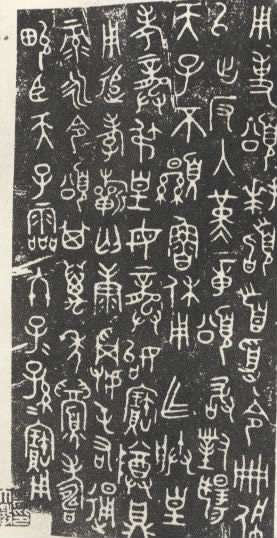 用事頌拜䭫首受令冊佩
以出反入堇章頌敢對揚
天子不顯魯休用乍朕皇
考龏弔皇母龏始寶尊鼎
用追孝𣄨匄康屯右通
彔永令頌其萬年眉壽
畯臣天子霝冬子=孫=寶用